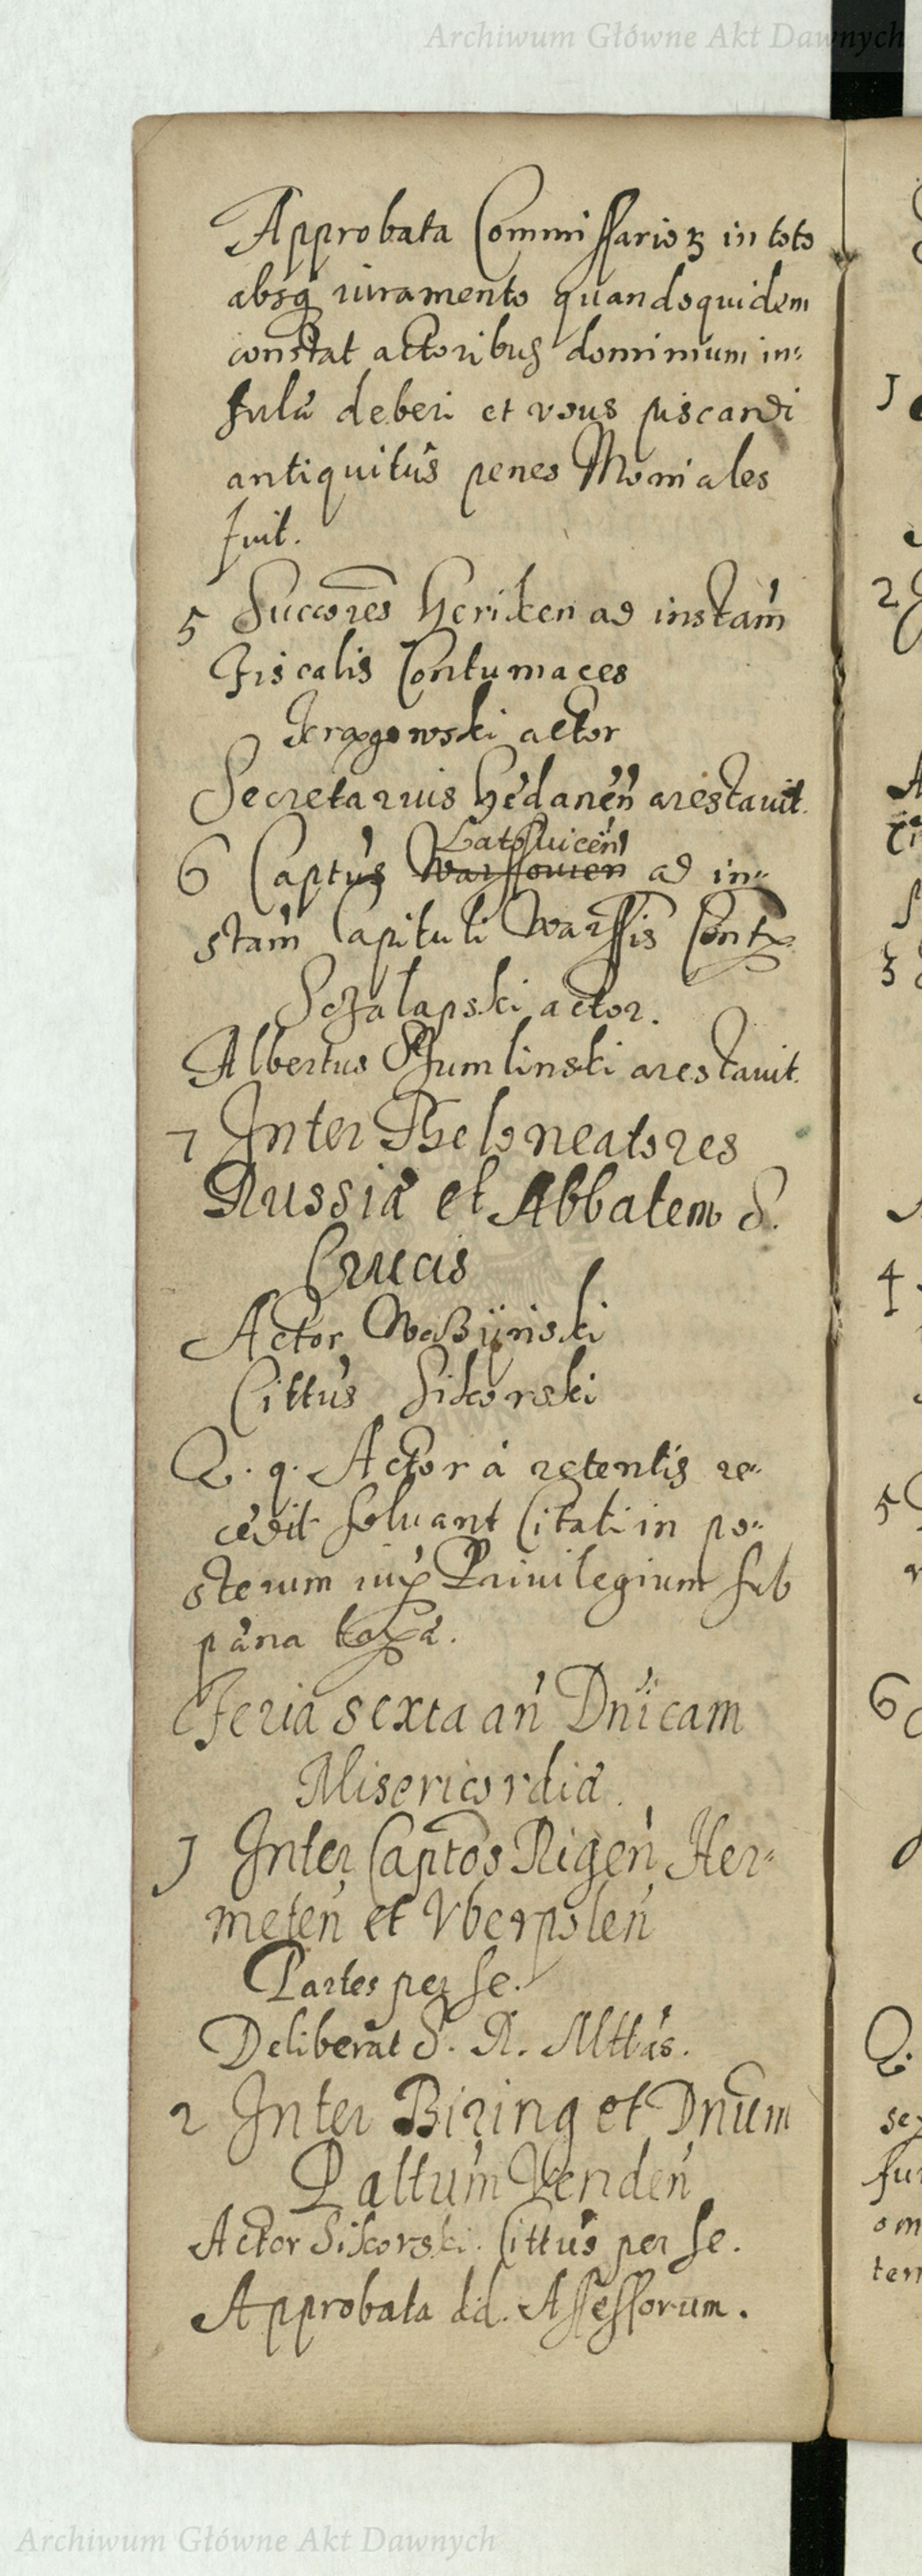 Archiwum Główne Akt Dawnych
Approbata Commissarioꝝ in toto
absq iuramento quandoquidem
constat actoribus dominium in:
sulæ deberi et vsus piscandi
antiquitus penes Moniales
fuit.
5 Succores Heriken ad instam̃
Fiscalis Contumaces
actor
Secretarius arestauit.
6 Captus Warssouien ad in=
stam̃ Capituli Warssis Contx
Sczalapski actor.
Albertus Szumlinski arestauit.
7 Inter Theloneatores
Russiæ et Abbatem S.
Crucis
Actor
Cittus Sikorski
Q. q. Actor à retentis re=
cedit soluant Citati in po=
sterum iux Priuilegium sub
pæna taxæ.
Feria sexta añ Dnicam
Misericordiæ.
1 Inter Captos Rigeń Her=
meteń et Vberpoleń
Partes per se.
Deliberat S. R. Mttas.
2 Inter Biring et Dnum
Paltum Vendeń
Actor Sikorski. Cittus per se.
Approbata dd. Assessorum.
1
2
3
4
5
6
Archiwum Główne Akt Dawnych